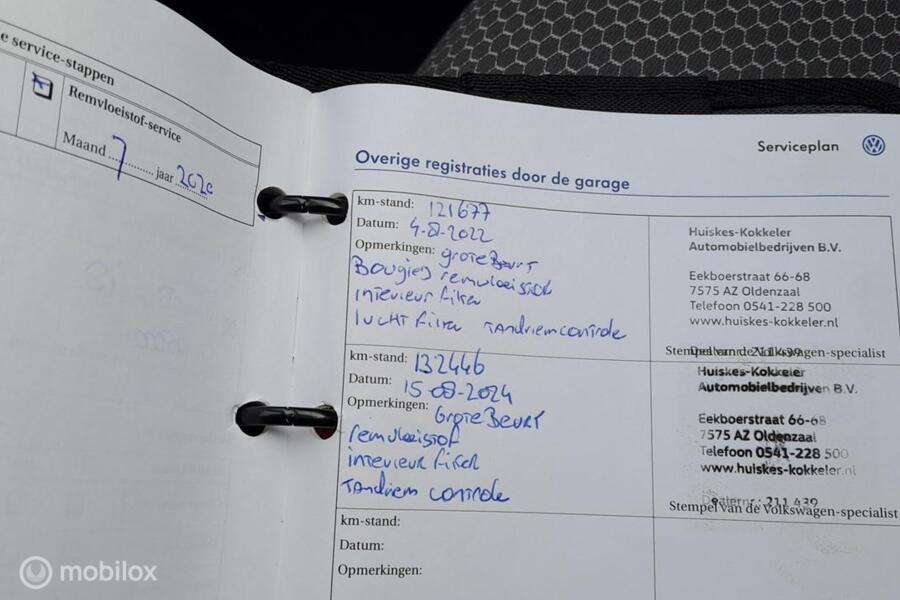 e service-stappen
Remvloeistof-service
Maand 7 jaar 2020
Serviceplan
Overige registraties door de garage
km-stand: 121677
Datum: 4-8-2022
Opmerkingen: groteBeurt
Bougies remvloeistof
intevieur filter
lucht filter tandriemcontrole
Huiskes-Kokkeler
Automobielbedrijven B.V.
Eekboerstraat 66-68
7575 AZ Oldenzaal
Telefoon 0541-228 500
www.huiskes-kokkeler.nl
Dealernr.: 211 439
Stempel van de Volkswagen-specialist
km-stand: 132446
Datum: 15-08-2024
Opmerkingen: Grote Beurt
remvloeistof
intevieur filter
tandriem controle
Huiskes-Kokkeler
Automobielbedrijven B.V.
Eekboerstraat 66-68
7575 AZ Oldenzaal
Telefoon 0541-228 500
www.huiskes-kokkeler.nl
Dealernr.: 211 439
Stempel van de Volkswagen-specialist
km-stand:
Datum:
Opmerkingen:
mobilox